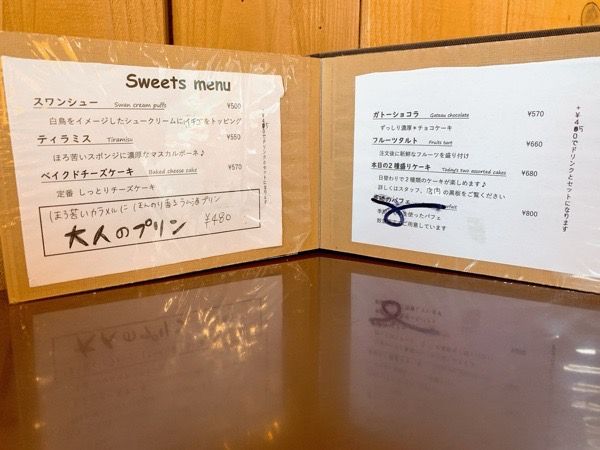 Sweets menu
スワンシュー Swan cream puffs ¥500
白鳥をイメージしたシュークリームにイチゴをトッピング
ティラミス Tiramisu ¥550
ほろ苦いスポンジに濃厚なマスカルポーネ♪
ベイクドチーズケーキ Baked cheese cake ¥570
定番 しっとりチーズケーキ
ほろ苦いカラメルに ほんのり香るラム酒プリン
大人のプリン ¥480
ガトーショコラ Gateau chocolate ¥570
ずっしり濃厚*チョコケーキ
フルーツタルト Fruits tart ¥660
注文後に新鮮なフルーツを盛り付け
本日の2種盛りケーキ Today's two assorted cakes ¥680
日替わりで2種類のケーキが楽しめます♪
詳しくはスタッフ、店内の黒板をご覧ください
パフェ ¥800
使ったパフェ
ご用意しています
でドリンクとセットになります